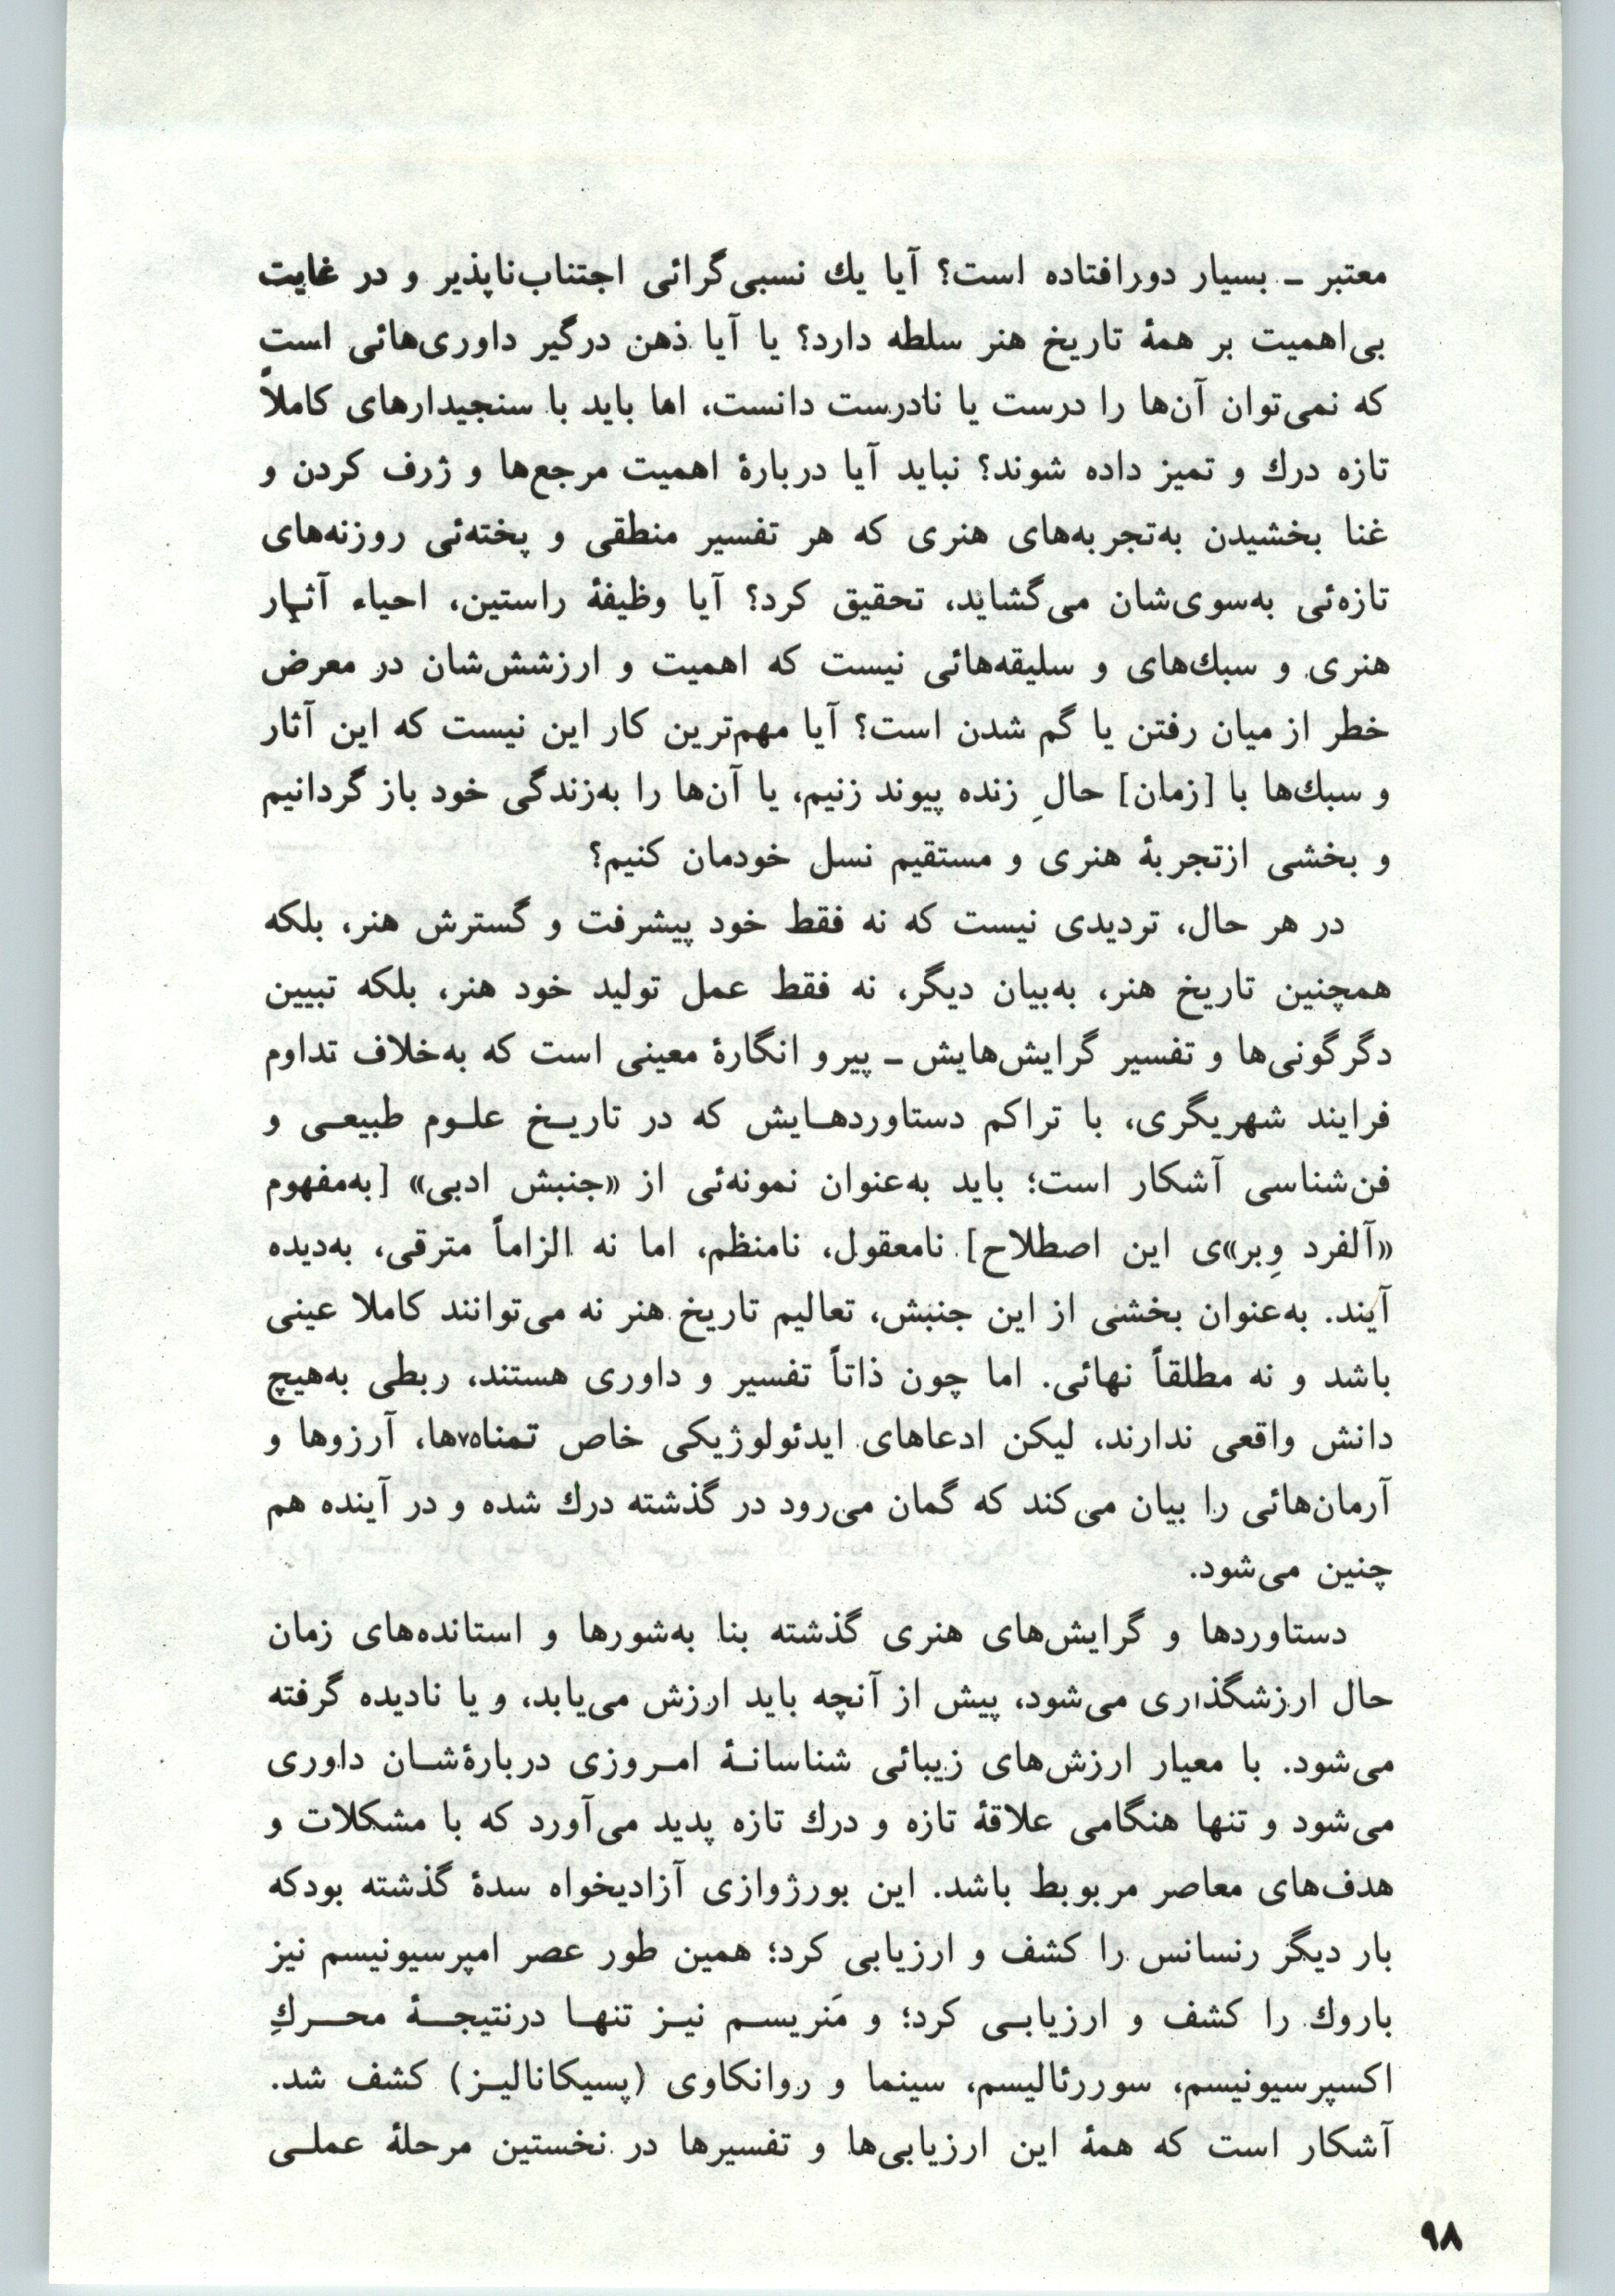 معتبر ـ بسیار دورافتاده است؟ آیا یك نسبی‌گرائی اجتناب‌ناپذیر و در غایت
بی‌اهمیت بر همهٔ تاریخ هنر سلطه دارد؟ یا آیا ذهن درگیر داوری‌هائی است
که نمی‌توان آن‌ها را درست یا نادرست دانست، اما باید با سنجیدارهای کاملاً
تازه درك و تمیز داده شوند؟ نباید آیا دربارهٔ اهمیت مرجع‌ها و ژرف کردن و
غنا بخشیدن به‌تجربه‌های هنری که هر تفسیر منطقی و پخته‌ئی روزنه‌های
تازه‌ئی به‌سوی‌شان می‌گشاید، تحقیق کرد؟ آیا وظیفهٔ راستین، احیاء آثـار
هنری و سبك‌های و سلیقه‌هائی نیست که اهمیت و ارزشش‌شان در معرض
خطر از میان رفتن یا گم شدن است؟ آیا مهم‌ترین کار این نیست که این آثار
و سبك‌ها با [زمان] حالِ زنده پیوند زنیم، یا آن‌ها را به‌زندگی خود باز گردانیم
و بخشی ازتجربهٔ هنری و مستقیم نسل خودمان کنیم؟
در هر حال، تردیدی نیست که نه فقط خود پیشرفت و گسترش هنر، بلکه
همچنین تاریخ هنر، به‌بیان دیگر، نه فقط عمل تولید خود هنر، بلکه تبیین
دگرگونی‌ها و تفسیر گرایش‌هایش ـ پیرو انگارهٔ معینی است که به‌خلاف تداوم
فرایند شهریگری، با تراکم دستاوردهـایش که در تاریـخ علـوم طبیعـی و
فن‌شناسی آشکار است؛ باید به‌عنوان نمونه‌ئی از «جنبش ادبی» [به‌مفهوم
«آلفرد وِبر»ی این اصطلاح] نامعقول، نامنظم، اما نه الزاماً مترقی، به‌دیده
آیند. به‌عنوان بخشی از این جنبش، تعالیم تاریخ هنر نه می‌توانند کاملا عینی
باشد و نه مطلقاً نهائی. اما چون ذاتاً تفسیر و داوری هستند، ربطی به‌هیچ
دانش واقعی ندارند، لیکن ادعاهای ایدئولوژیکی خاص تمنا۷۵ها، آرزوها و
آرمان‌هائی را بیان می‌کند که گمان می‌رود در گذشته درك شده و در آینده هم
چنین می‌شود.
دستاوردها و گرایش‌های هنری گذشته بنا به‌شورها و استانده‌های زمان
حال ارزشگذاری می‌شود، پیش از آنچه باید ارزش می‌یابد، و یا نادیده گرفته
می‌شود. با معیار ارزش‌های زیبائی شناسانـهٔ امـروزی دربارهٔ‌شـان داوری
می‌شود و تنها هنگامی علاقهٔ تازه و درك تازه پدید می‌آورد که با مشکلات و
هدف‌های معاصر مربوبط باشد. این بورژوازی آزادیخواه سدهٔ گذشته بودکه
بار دیگر رنسانس را کشف و ارزیابی کرد؛ همین طور عصر امپرسیونیسم نیز
باروك را کشف و ارزیابـی کرد؛ و مَنریسـم نیـز تنهـا درنتیجـــهٔ محـــركِ
اکسپرسیونیسم، سوررئالیسم، سینما و روانکاوی (پسیکانالیـز) کشف شد.
آشکار است که همهٔ این ارزیابی‌ها و تفسیرها در نخستین مرحلهٔ عملـی
۹۸